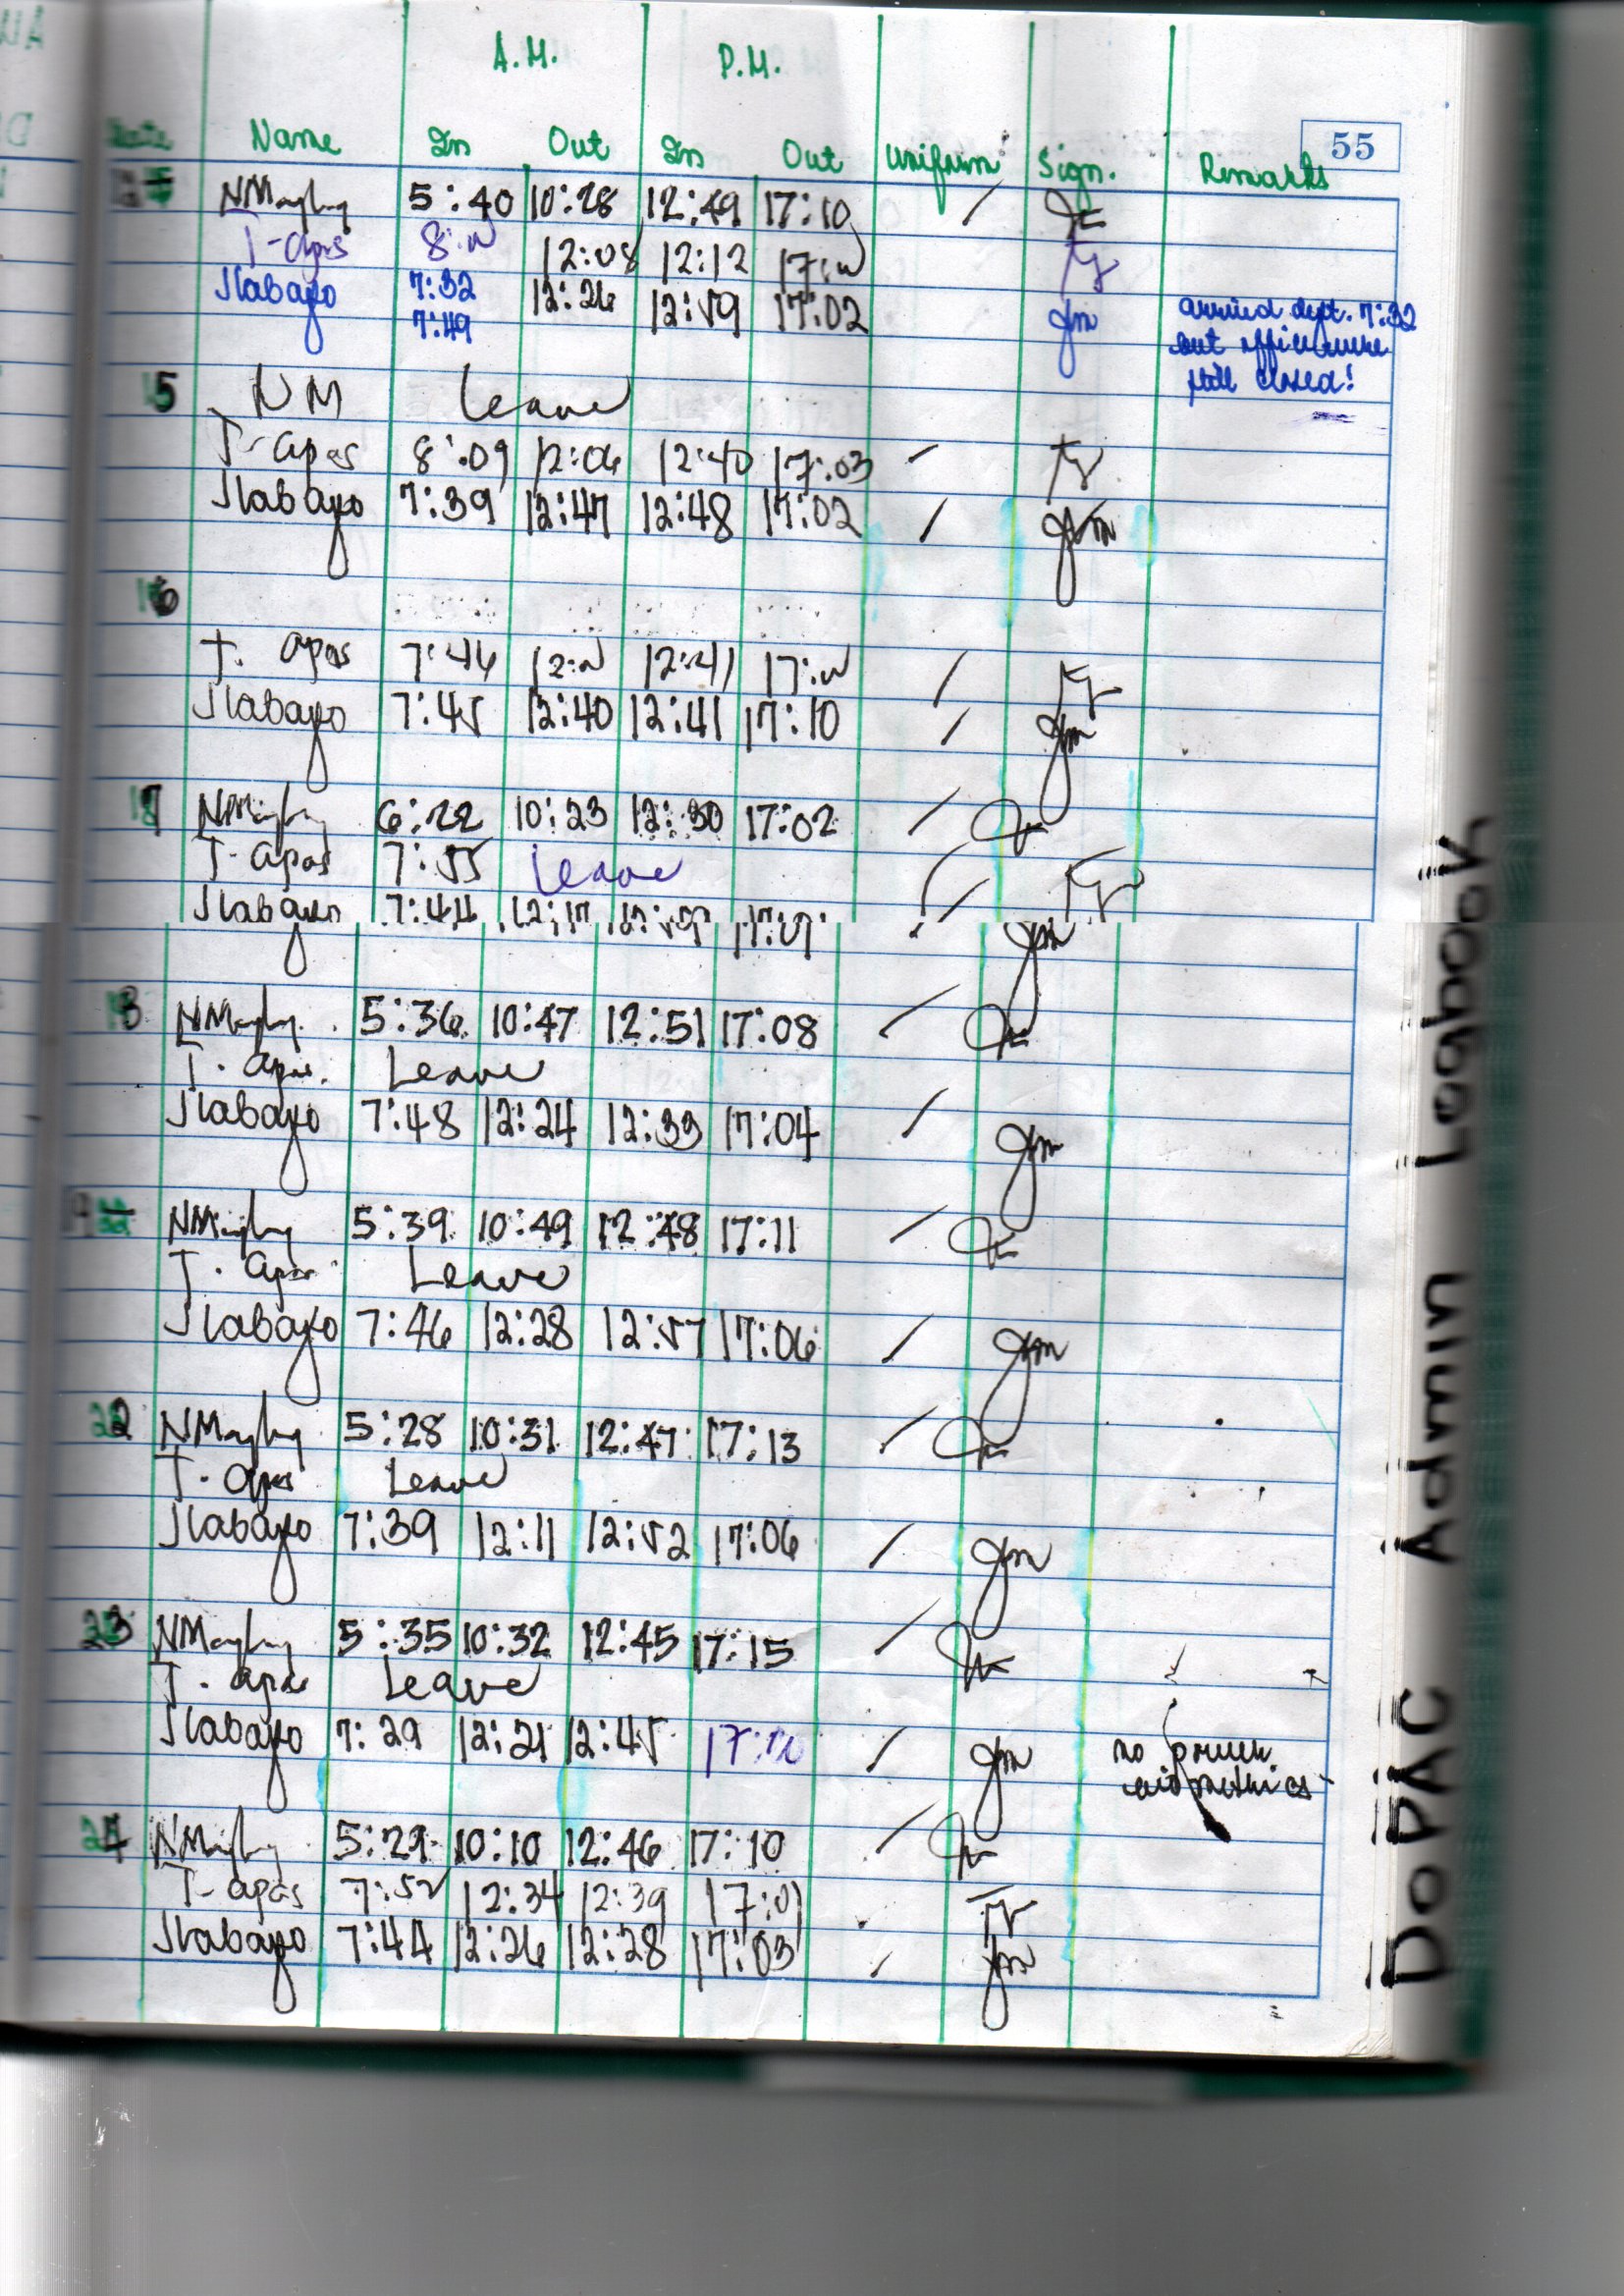 A.M. P.M.
55
Date Name In Out In Out Uniform Sign. Remarks
5:40 10:28 12:49 17:10 /
T-Apas 12:08 12:12
Jlabayo 7:32 12:26 12:59 17:02 arrived dept. 7:32
7:49 but office were
still closed!
15 NM Leave
T-Apas 8:09 12:06 12:40 17:03 /
Jlabayo 7:39 12:47 12:48 17:02 /
16
T. Apas 7:46 12:41 /
Jlabayo 7:45 12:40 12:41 17:10 /
6:22 10:23 12:30 17:02 /
T-Apas 7:55 Leave /
Jlabayo 7:44 12:17 12:59 17:01 /
5:36 10:47 12:51 17:08 /
T. Apas. Leave
Jlabayo 7:48 12:24 12:33 17:04 /
19 5:39 10:49 12:48 17:11 /
T. Apas Leave
Jlabayo 7:46 12:28 12:57 17:06 /
22 5:28 10:31 12:47 17:13 /
T-Apas Leave
Jlabayo 7:39 12:11 12:52 17:06 /
23 5:35 10:32 12:45 17:15 /
T. Apas Leave
Jlabayo 7:29 12:21 12:45 / no
24 5:29 10:10 12:46 17:10 /
T-Apas 7:52 12:34 12:39 17:01
Jlabayo 7:44 12:26 12:28 17:03 /
DoPAC Admin Logbook